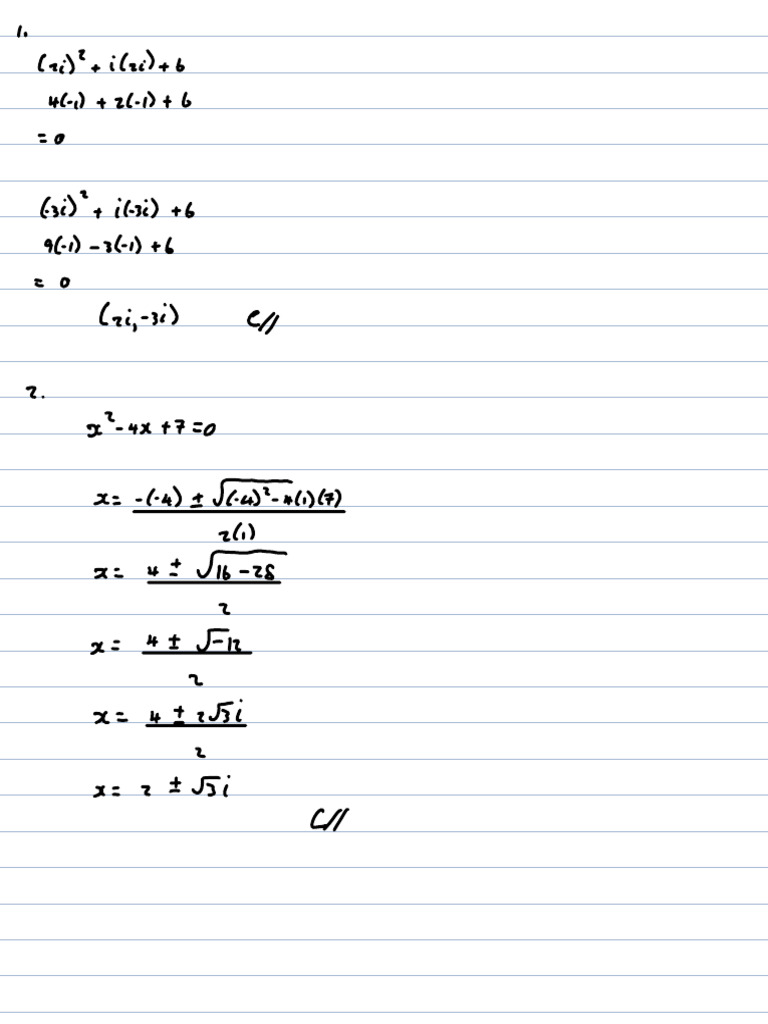 1.
(2i)² + i(2i) + 6
4(-1) + 2(-1) + 6
= 0
(-3i)² + i(-3i) + 6
9(-1) - 3(-1) + 6
= 0
(2i, -3i) C//
2.
x² - 4x + 7 = 0
x = (-(-4) ± √((-4)² - 4(1)(7))) / 2(1)
x = (4 ± √(16 - 28)) / 2
x = (4 ± √-12) / 2
x = (4 ± 2√3i) / 2
x = 2 ± √3i
C//